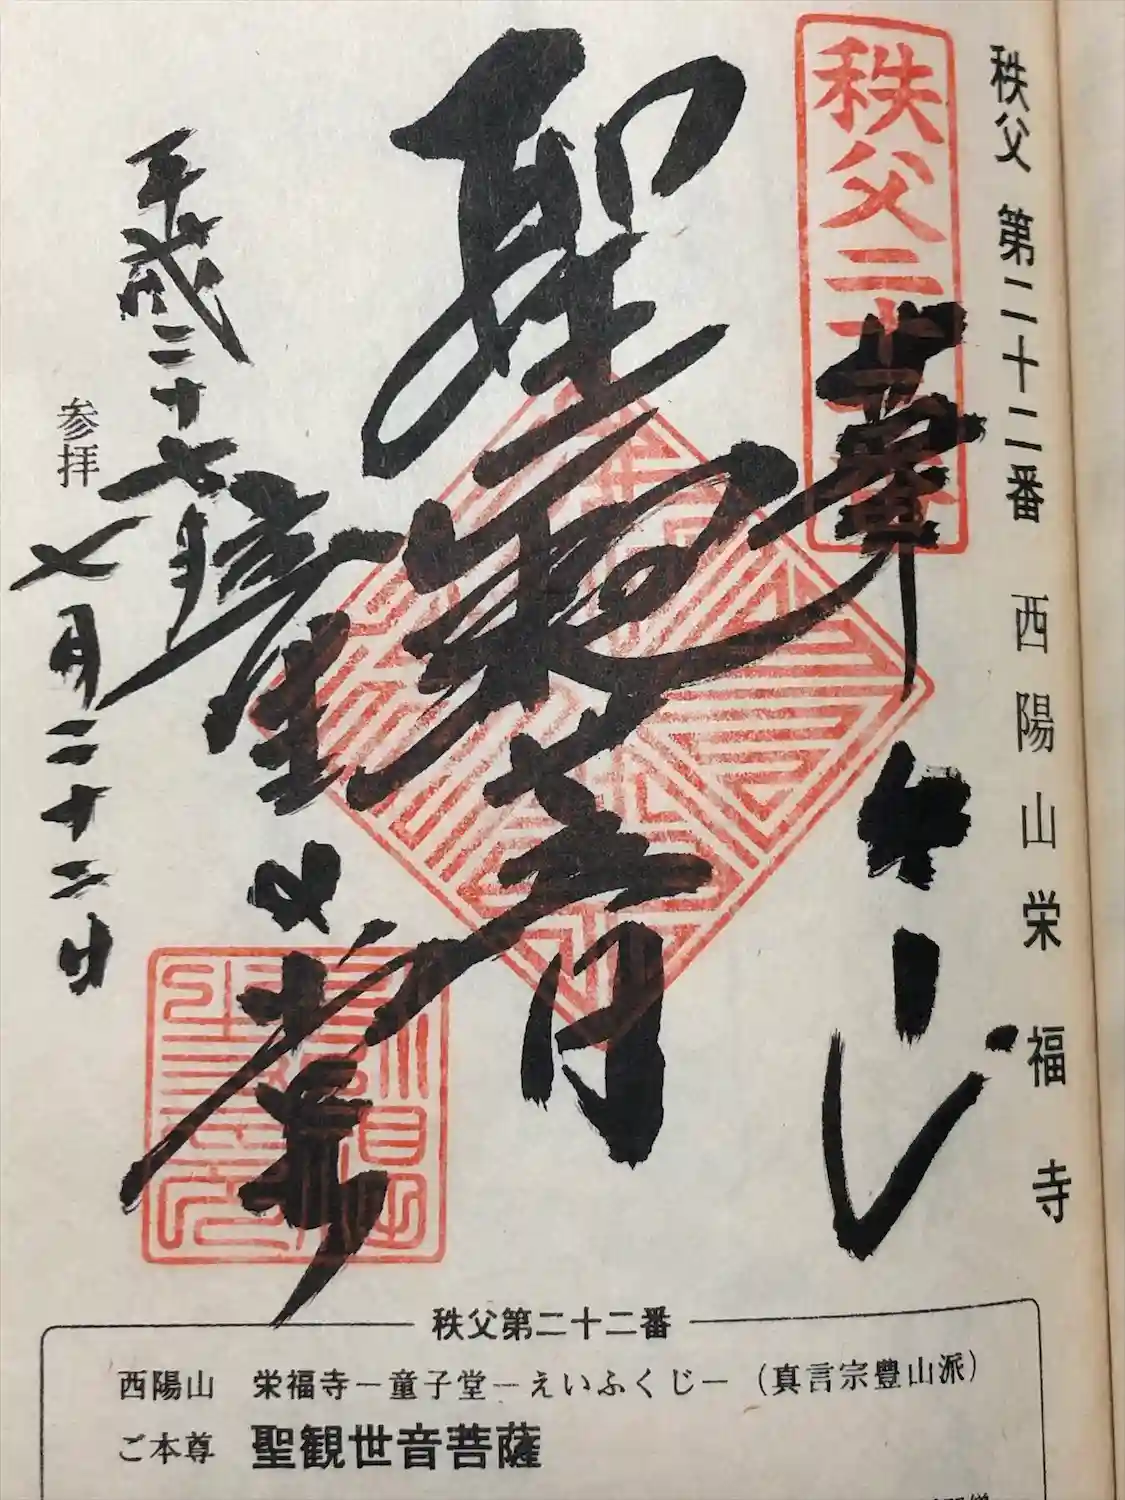 秩父 第二十二番 西陽山 栄福寺
秩父二十二番
奉
聖観世音
童子堂
平成二十七年
七月二十二日
参拝
秩父第二十二番
西陽山 栄福寺ー童子堂ーえいふくじー（真言宗豊山派）
ご本尊 聖観世音菩薩